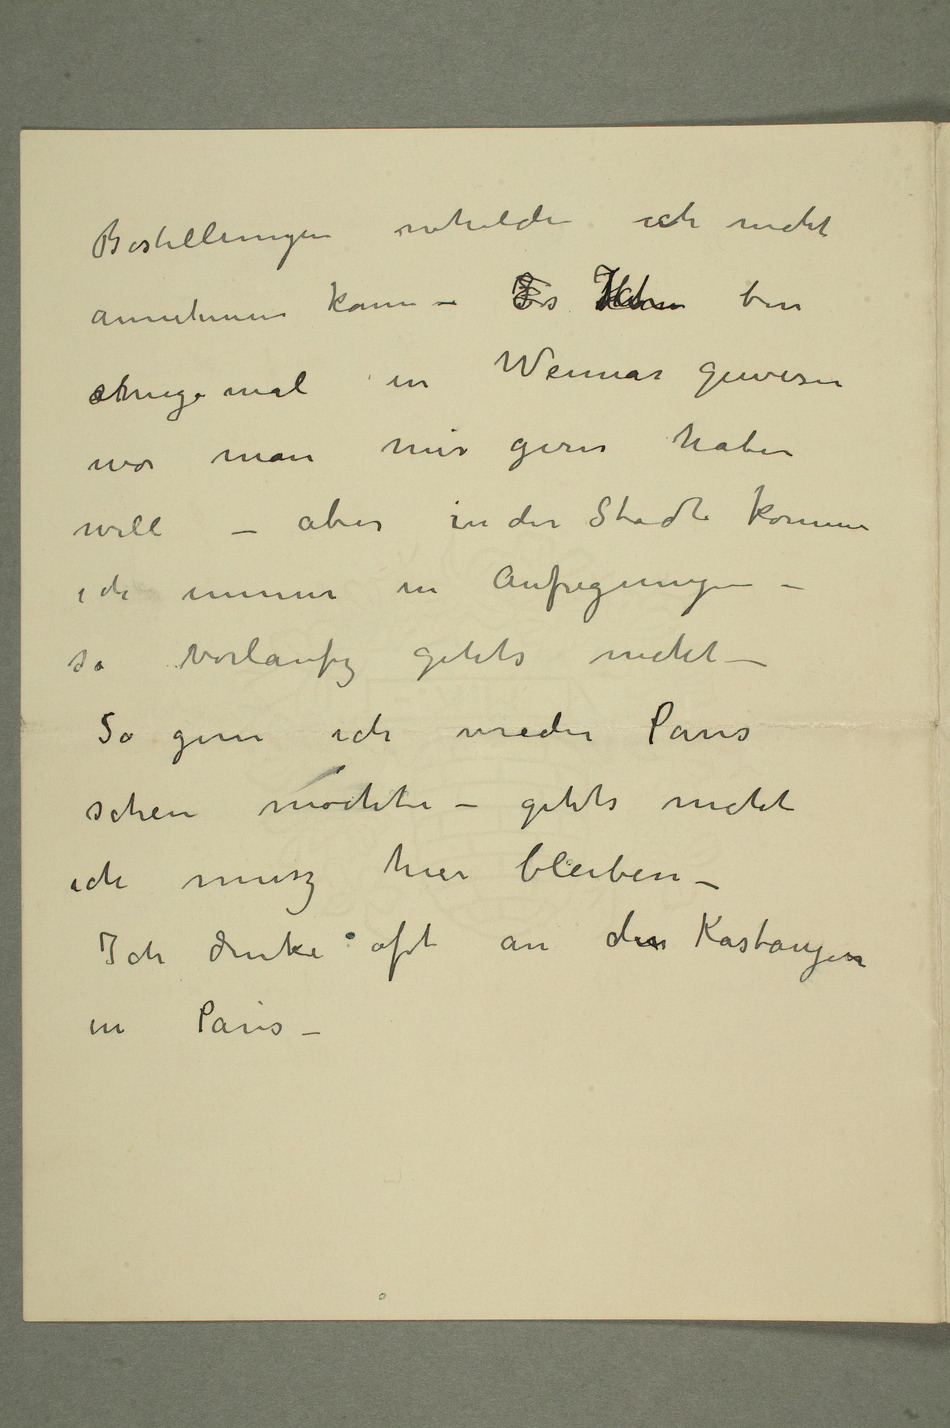 Bestellungen whelde ich nicht
annehmen kann – Es Ich bin
einige mal in Weimar gewesen
wo man mir gern haben
will – aber in der Stadt komme
ich immer in Aufregungen –
so vorlaufig gehts nicht –
So gern ich wieder Paris
sehen möchte – gehts nicht
ich musz hier bleiben –
Ich denke oft an den Kastangen
in Paris –